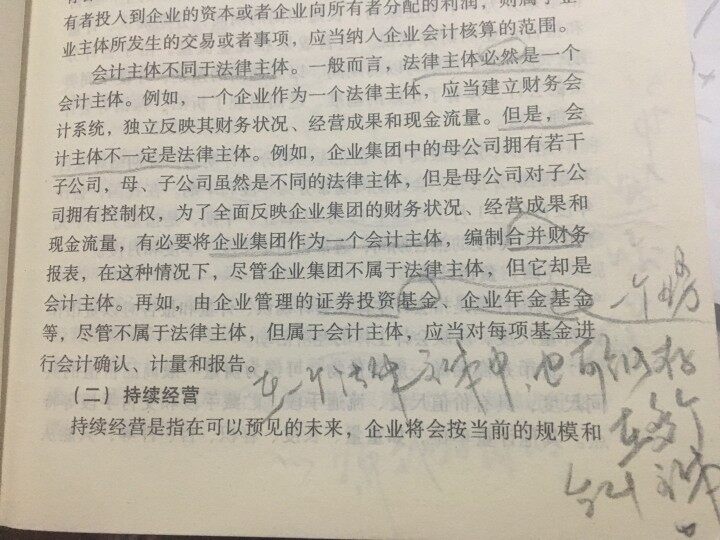 有者投入到企业的资本或者企业向所有者分配的利润，则属于企
业主体所发生的交易或者事项，应当纳入企业会计核算的范围。
会计主体不同于法律主体。一般而言，法律主体必然是一个
会计主体。例如，一个企业作为一个法律主体，应当建立财务会
计系统，独立反映其财务状况、经营成果和现金流量。但是，会
计主体不一定是法律主体。例如，企业集团中的母公司拥有若干
子公司，母、子公司虽然是不同的法律主体，但是母公司对子公
司拥有控制权，为了全面反映企业集团的财务状况、经营成果和
现金流量，有必要将企业集团作为一个会计主体，编制合并财务
报表，在这种情况下，尽管企业集团不属于法律主体，但它却是
会计主体。再如，由企业管理的证券投资基金、企业年金基金
等，尽管不属于法律主体，但属于会计主体，应当对每项基金进
行会计确认、计量和报告。
（二）持续经营
持续经营是指在可以预见的未来，企业将会按当前的规模和
一个
在一个法律主体中，也可能存
在多个
会计主体